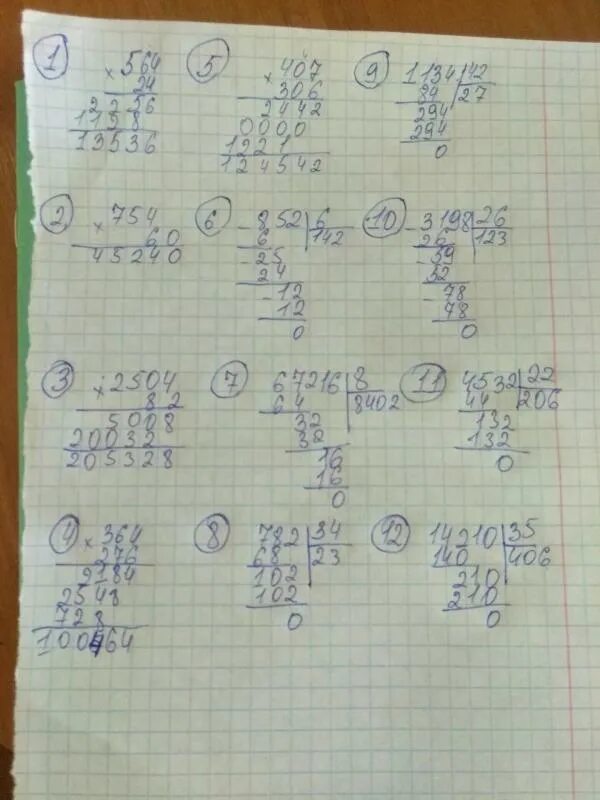 1
× 564
24
2256
1128
13536
2
× 754
60
45240
3
× 2504
82
5008
20032
205328
4
× 364
276
2184
2548
728
100464
5
× 407
306
2442
0000
1221
124542
6
- 852 | 6
6 | 142
- 25
24
- 12
12
0
7
67216 | 8
64 | 8402
32
32
16
16
0
8
782 | 34
68 | 23
102
102
0
9
1134 | 42
84 | 27
294
294
0
10
- 3198 | 26
26 | 123
- 59
52
- 78
78
0
11
4532 | 22
44 | 206
132
132
0
12
14210 | 35
140 | 406
210
210
0